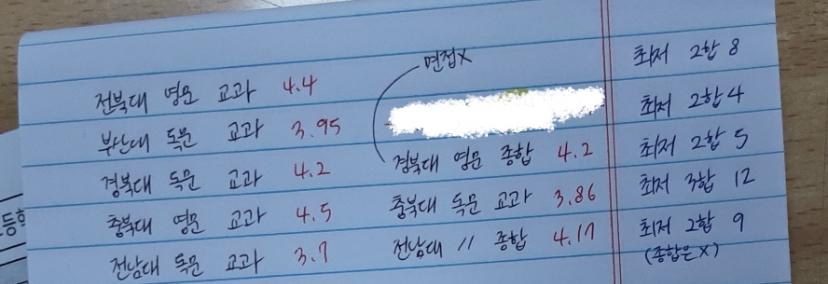 면접X
전북대 영문 교과 4.4 최저 2합 8
부산대 독문 교과 3.95 최저 2합 4
경북대 독문 교과 4.2 경북대 영문 종합 4.2 최저 2합 5
충북대 영문 교과 4.5 충북대 독문 교과 3.86 최저 3합 12
전남대 독문 교과 3.7 전남대 〃 종합 4.17 최저 2합 9
(종합은 X)
등학